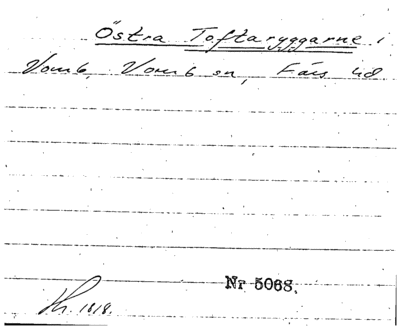 Östra Toftaryggarne i
Vomb, Vomb sn, Färs hd
Nr 5068.
1818.